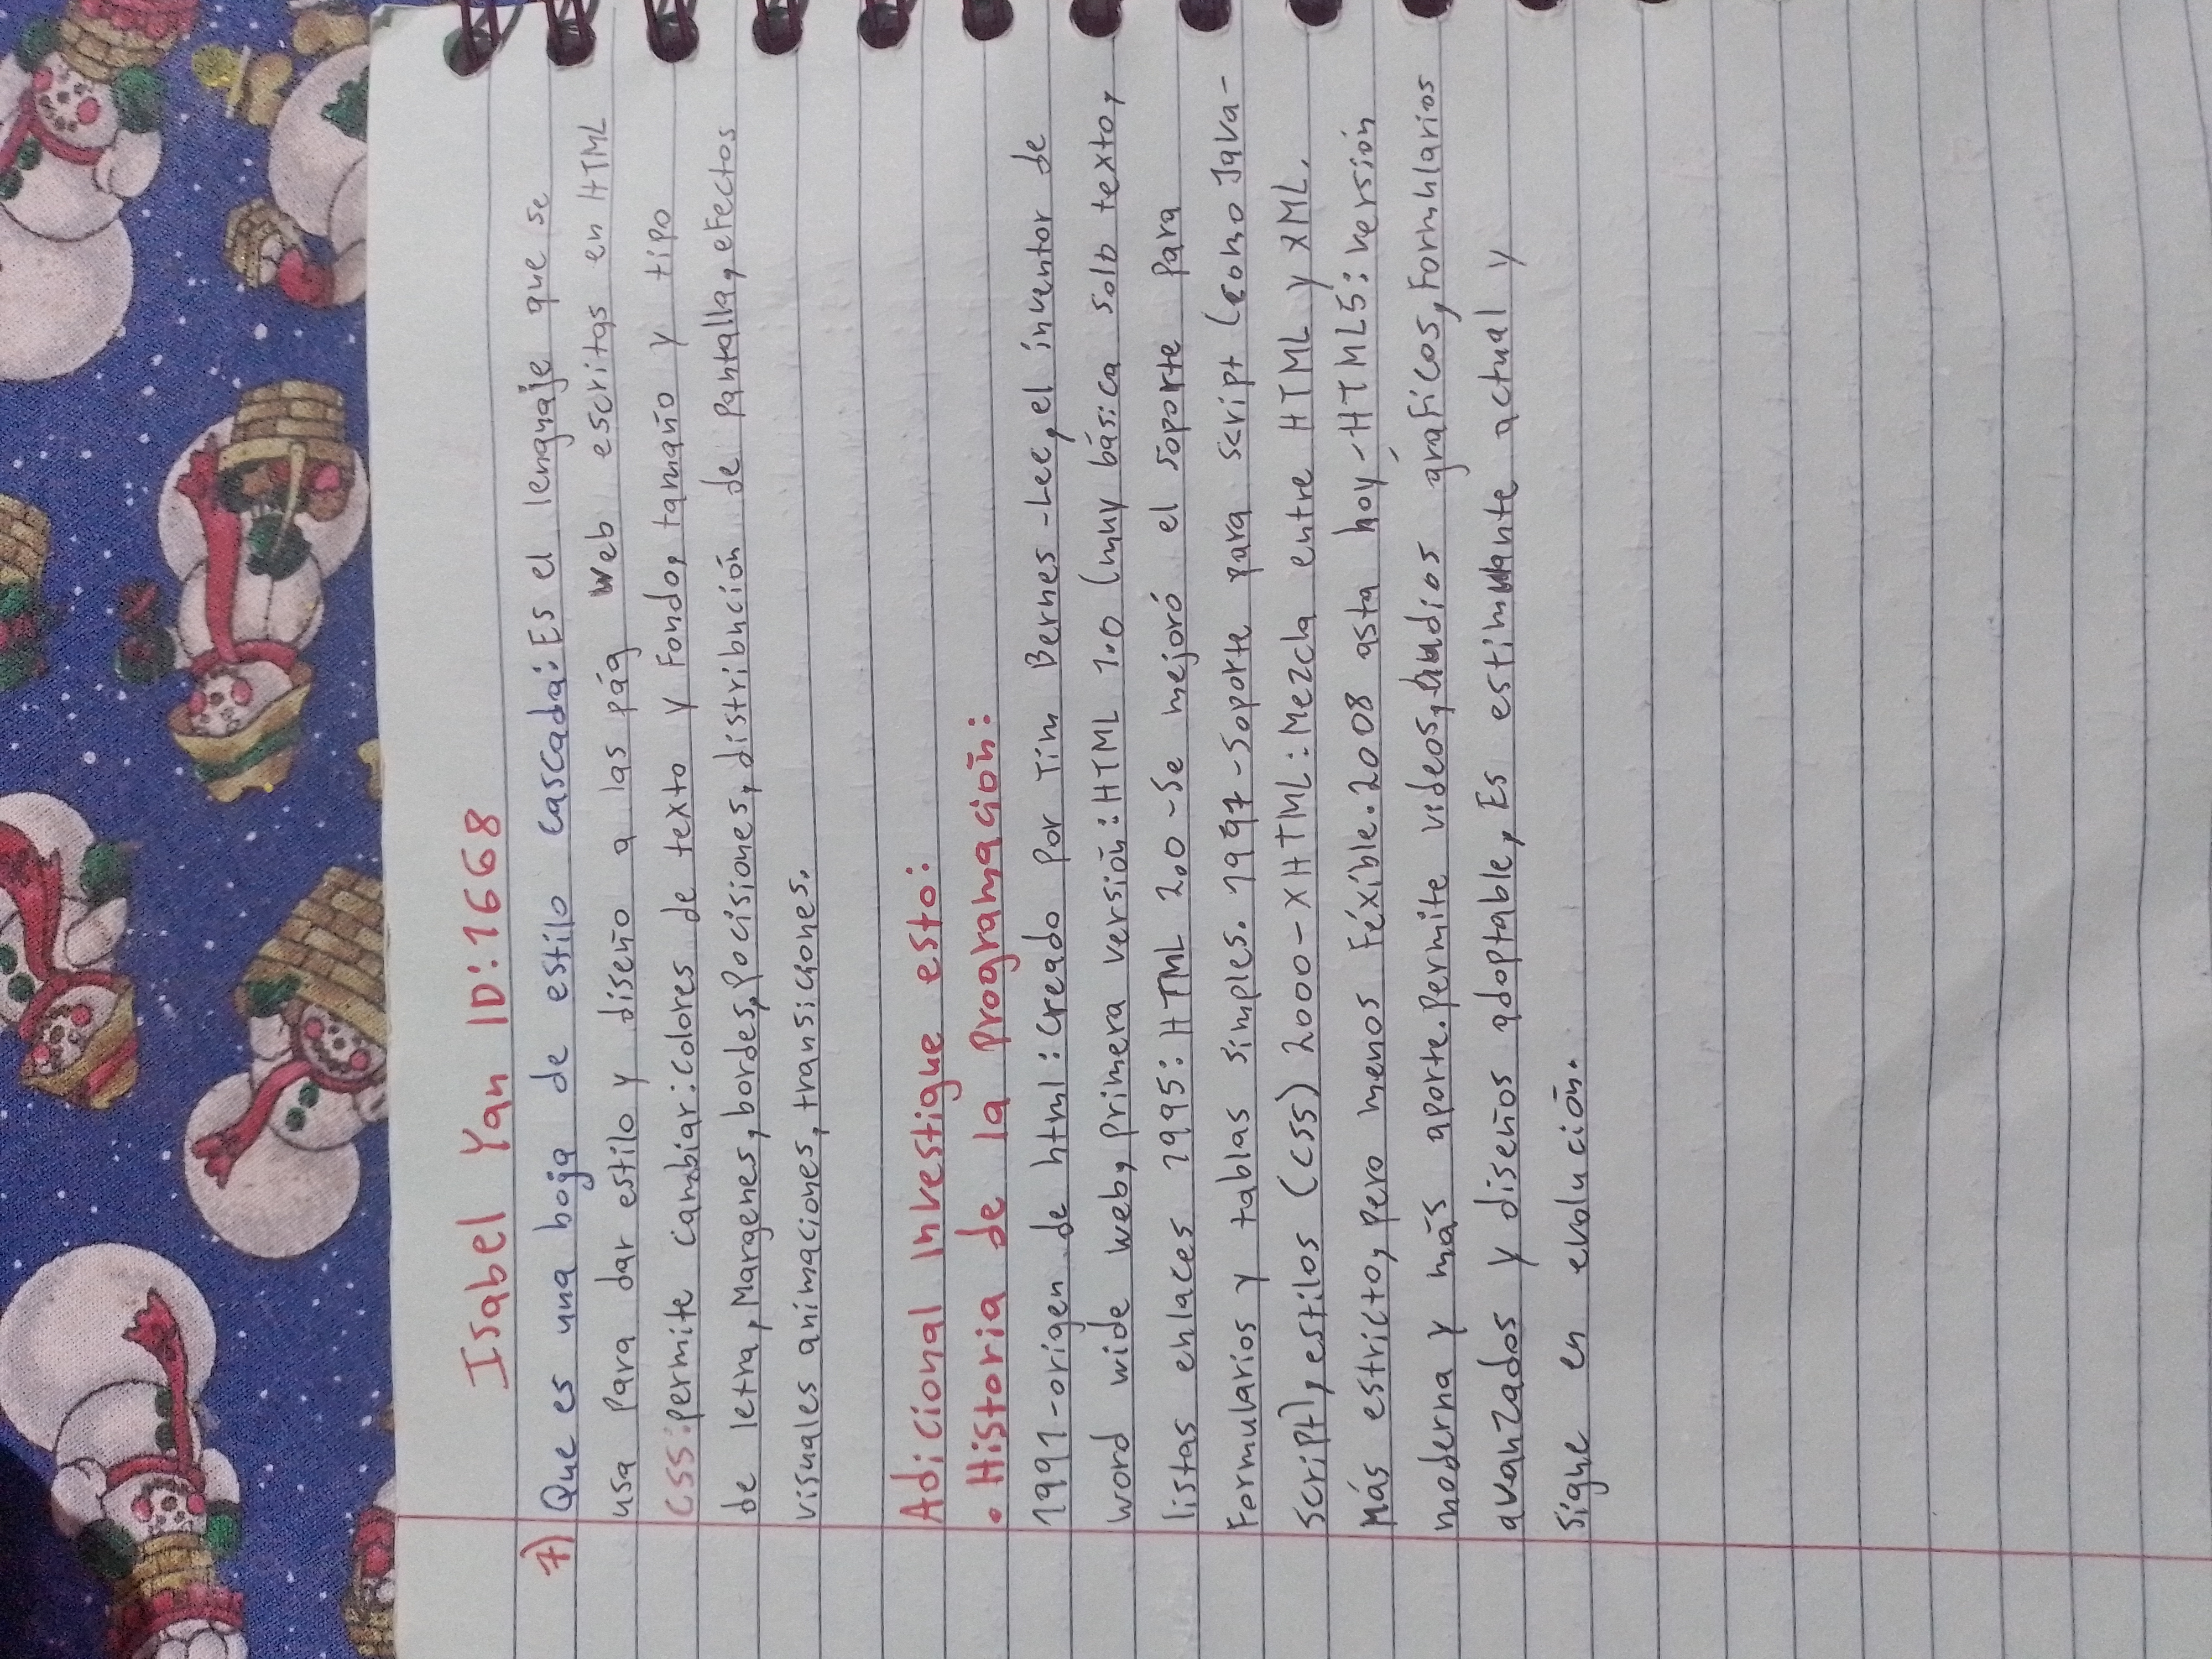 Isabel Yan ID:1668
7) Que es una hoja de estilo cascada: Es el lenguaje que se
usa para dar estilo y diseño a las pág web escritas en HTML
CSS: permite cambiar: colores de texto y fondo, tamaño y tipo
de letra, Margenes, bordes, Pocisiones, distribución de Pantalla, efectos
visuales animaciones, transiciones.
Adicional Investigue esto:
• Historia de la Programación:
1991-origen de html: Creado por Tim Bernes-Lee, el inventor de
word wide web, primera versión: HTML 1.0 (muy básica solo texto,
listas enlaces 1995: HTML 2.0-Se mejoró el soporte para
Formularios y tablas simples. 1997-Soporte para script (como Java-
Script), estilos (CSS) 2000-XHTML: Mezcla entre HTML y XML.
Más estricto, pero menos fexible. 2008 asta hoy-HTML5: versión
moderna y más aporte. Permite videos, audios gráficos, Formularios
avanzados y diseños adoptable, Es estimulante actual y
sigue en evolución.